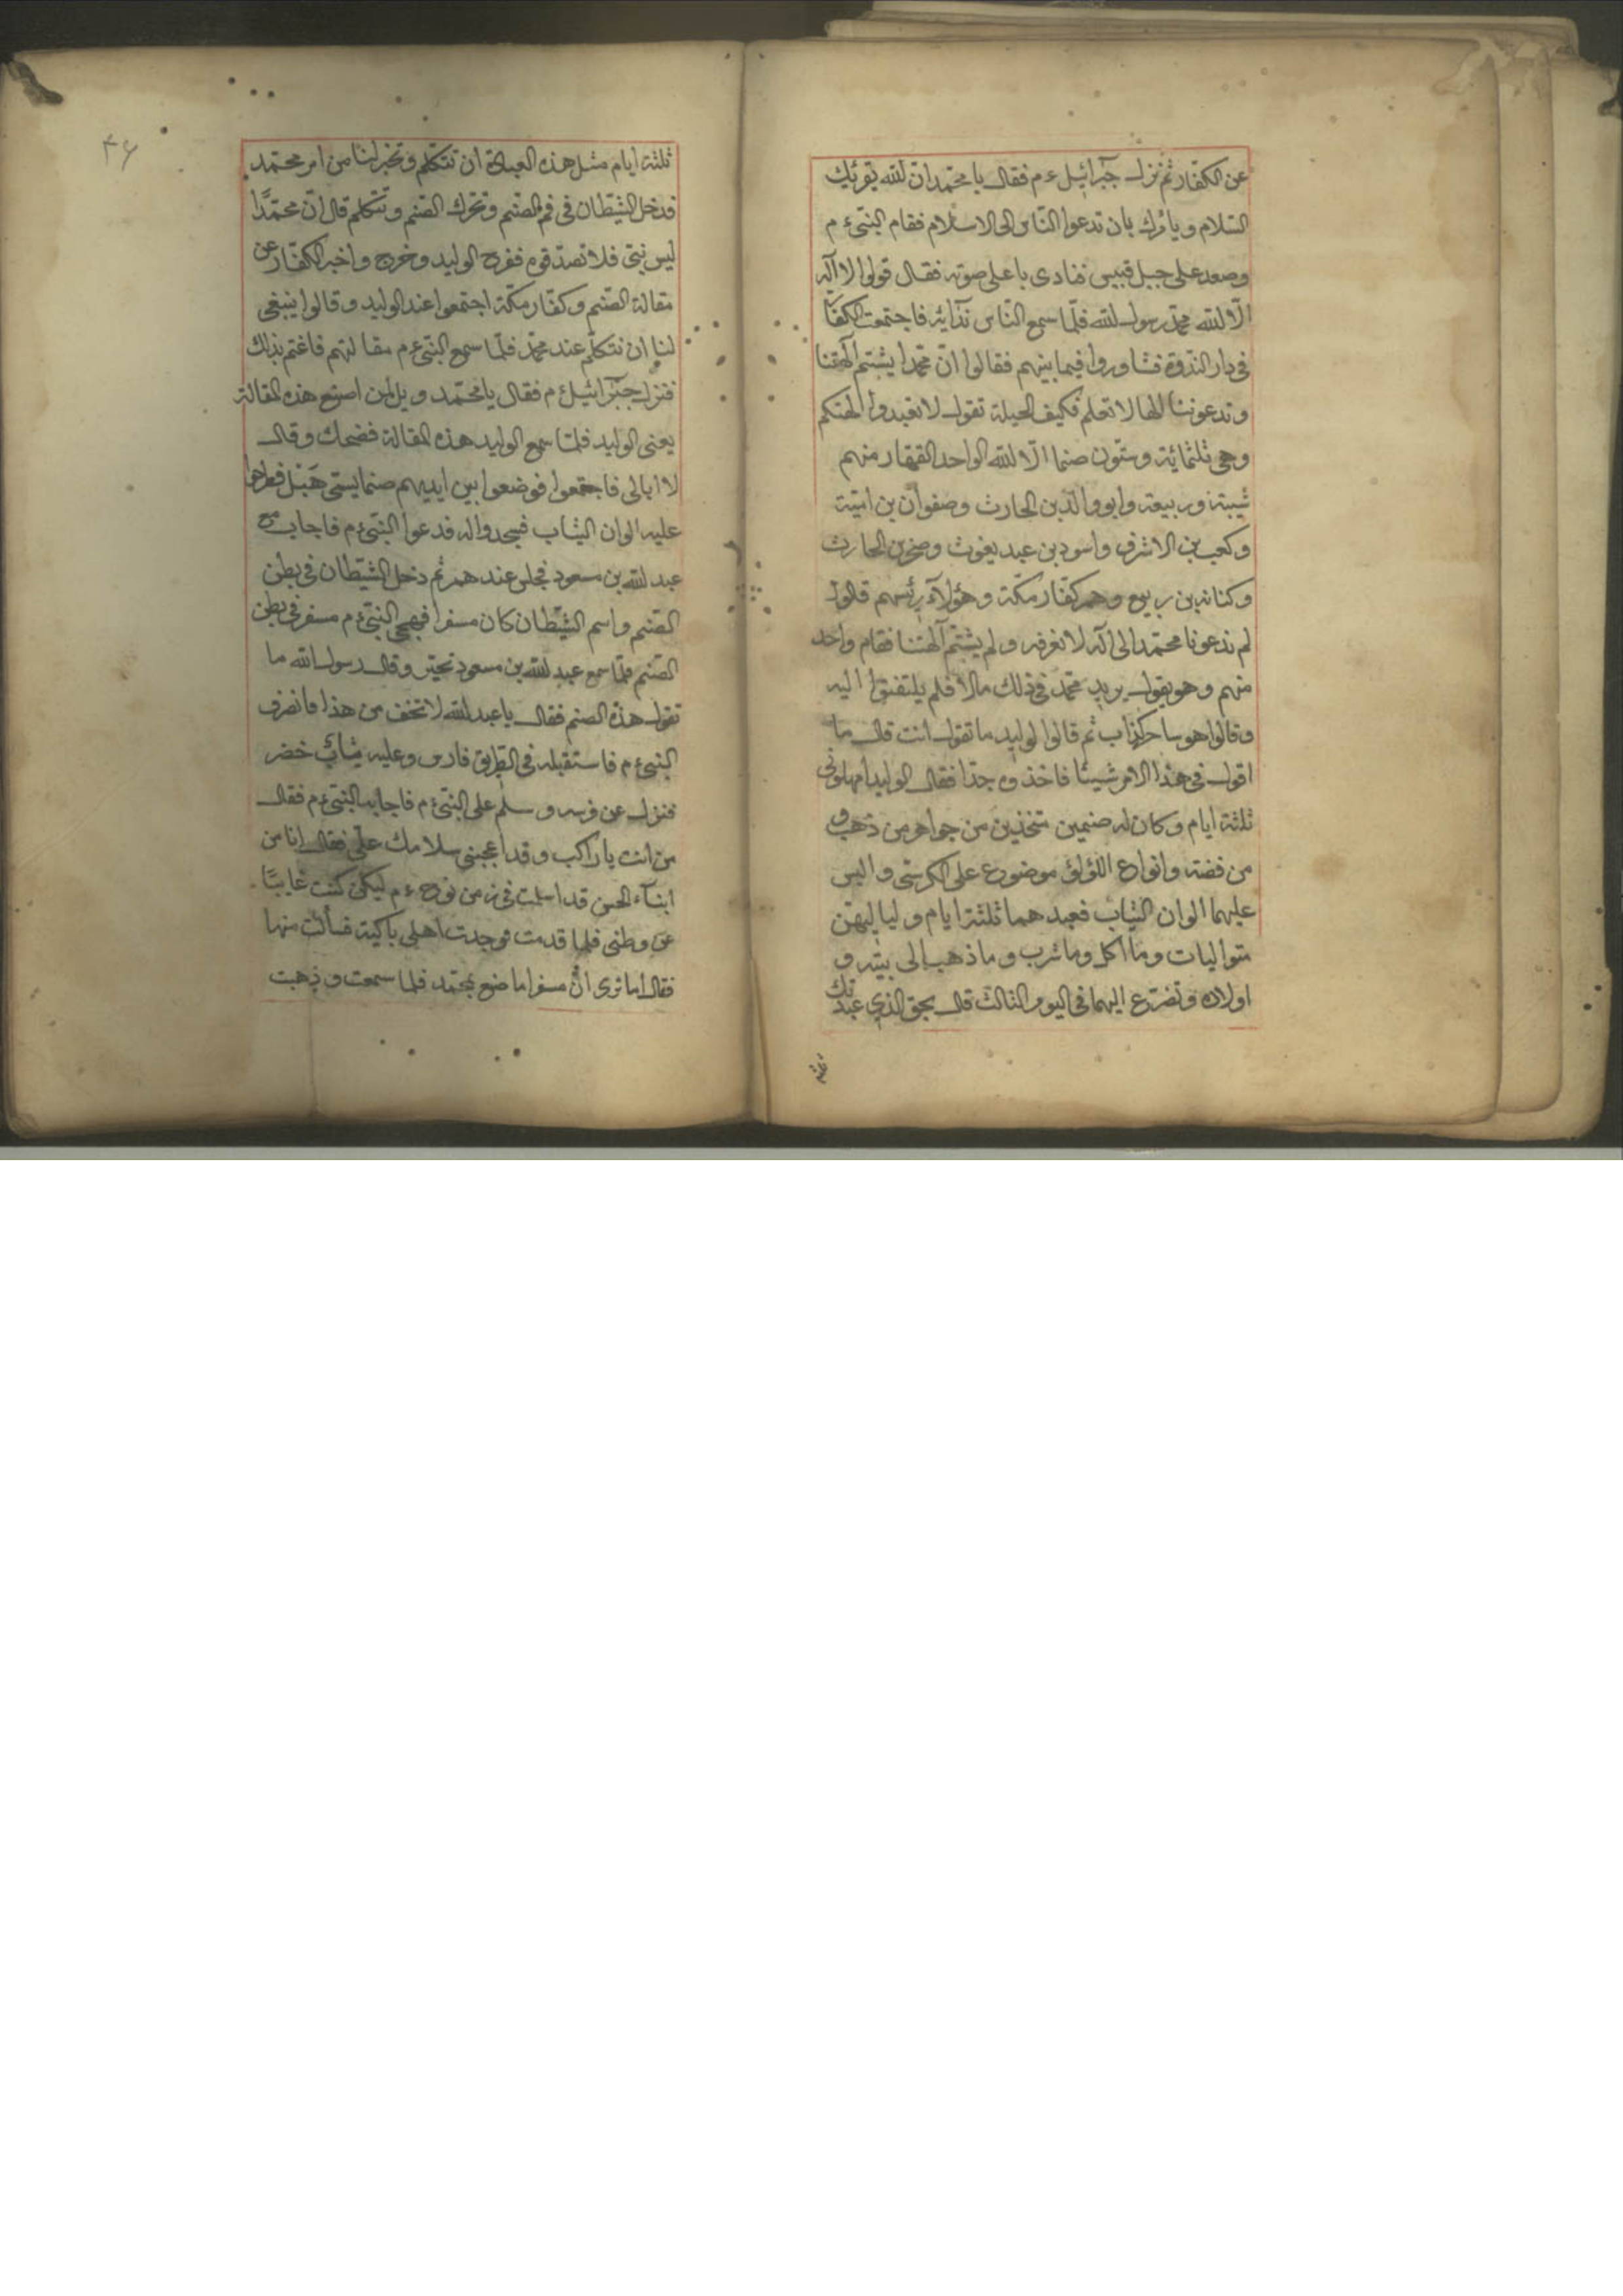 عن الكفار ثم نزل جبرائيل ءم فقال يا محمد ان الله يقرئك
السلام ويامرك بان تدعوا الناس الى الاسلام فقام النبى ءم
وصعد على جبل قبيس فنادى باعلى صوته فقال قولوا لا اله
الا الله محمد رسول الله فلما سمع الناس ندائه فاجتمعت الكفار
فى دار الندوة فشاوروا فيما بينهم فقالوا ان محمدا يشتم آلهتنا
وتدعوننا الها لا تعلم فكيف الحيلة تقول لا تعبدوا الهتكم
وهى ثلثمائة وستون صنما الا الله الواحد القهار منهم
شيبة وربيعة وابو والد بن الحارث وصفوان بن امية
وكعب بن الاشرف واسود بن عبد يغوث وصخر بن الحارث
وكنانة بن ربيع وهم كفار مكة وهؤلاء رئسهم قالوا
لم تدعونا محمدا الى اله لا نعرفه ولم يشتم آلهتنا فقام واحد
منهم وهو يقول يريد محمد فى ذلك مالا فلم يلتفتوا اليه
وقالوا هو ساحر كذاب ثم قالوا لوليد ما تقول انت قال ما
اقول فى هذا الامر شيئا فاخذوه جدا فقال الوليد امهلونى
ثلثة ايام وكان له صنمين متخذين من جواهر من ذهب و
من فضة وانواع اللؤلؤ موضوع على الكرسى والبس
عليهما الوان الثياب فعبدهما ثلثة ايام ولياليهن
متواليات وما اكل وما شرب وما ذهب الى بيته و
اولاده وتضرع اليهما فى اليوم الثالث قال بحق الذى عبدتك
ثلثة
۴۶
ثلثة ايام مثل هذه العبادة ان تتكلم وتخبر لنا من امر محمد
فدخل الشيطان فى فم الصنم وتحرك الصنم وتتكلم قال ان محمدا
ليس نبى فلا تصدقوه ففرح الوليد وخرج واخبر الكفار عن
مقالة الصنم وكفار مكة اجتمعوا عند الوليد وقالوا ينبغى
لنا ان نتكلم عند محمد فلما سمع النبى ءم مقالتهم فاغتم بذلك
فنزل جبرائيل ءم فقال يا محمد ويل لمن اصنع هذه المقالة
يعنى الوليد فلما سمع الوليد هذه المقالة فضحك وقال
لا ابالى فاجتمعوا فوضعوا بين ايديهم صنما يسمى هبل
عليه الوان الثياب فسجدوا له فدعوا النبى ءم فاجاب مع
عبد الله بن مسعود فجلس عندهم ثم دخل الشيطان فى بطن
الصنم واسم الشيطان كان مسفرا فهجى النبى ءم مسفر فى بطن
الصنم فلما سمع عبد الله بن مسعود تحير وقال رسول الله ما
تقول هذه الصنم فقال يا عبد الله لا تخف من هذا فانصرف
النبى ءم فاستقبله فى الطريق فارس وعليه ثياب خضر
فنزل عن فرسه وسلم على النبى ءم فاجابه النبى ءم فقال
من انت يا راكب وقد اعجبنى سلامك على فقال انا من
ابناء الجن قد اسلمت فى زمن نوح ءم ليكن كنت غايبا
عن وطنى فلما قدمت فوجدت اهلى باكية فسألت منها
فقال اما ترى ان مسفرا ما صنع بمحمد فلما سمعت وذهبت